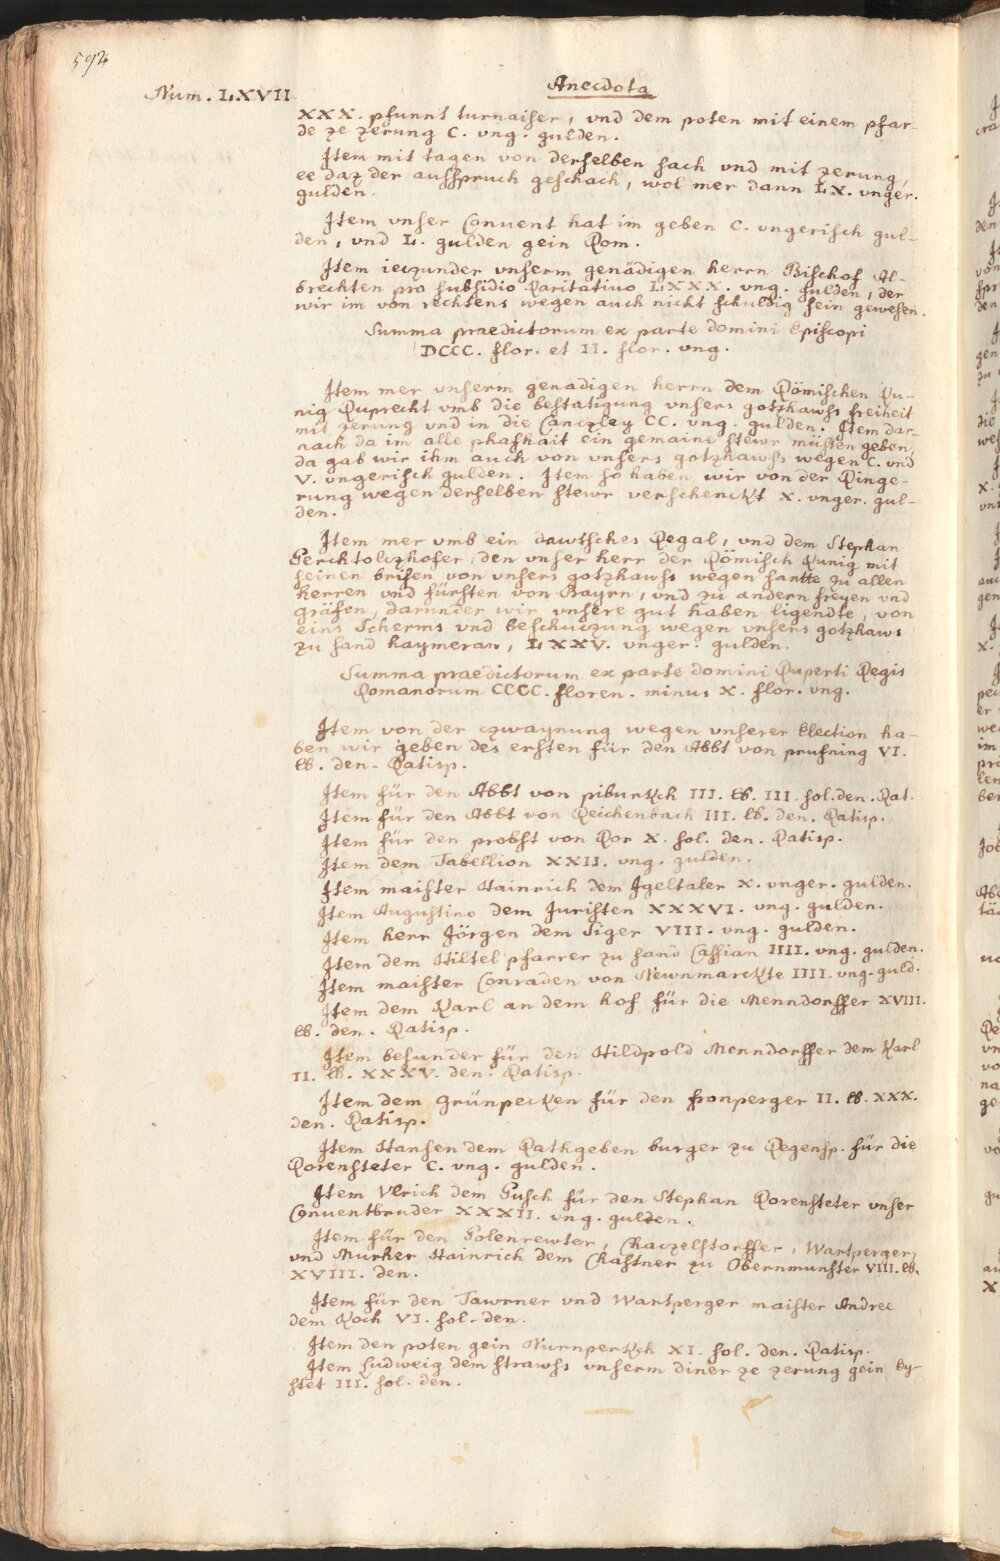 592
Num. LXVII
Anecdota
XXX. pfunnt turnaiser, vnd dem poten mit einem pfar-
de ze zerung C. vng. gulden.
Item mit tagen von derselben sach vnd mit zerung,
ee daz der aussspruch geschach, wol mer dann LX. vnger.
gulden.
Item vnser Conuent hat im geben C. vngerisch gul-
den, vnd L. gulden gein Rom.
Item ieczunder vnserm genädigen herrn Bischof Al-
brechten pro subsidio Karitatiuo LXXX. vng. gulden, der
wir im von rechtens wegen auch nicht schuldig sein gewesen.
Summa praedictorum ex parte domini Episcopi
DCCC. flor. et II. flor. vng.
Item mer vnserm genadigen herrn dem Römischen Ku-
nig Ruprecht vmb die bestatigung vnsers gotzhawss freiheit
mit zerung vnd in die Canczley CC. vng. gulden. Item dar-
nach da im alle phafhait ein gemaine stewr müssen geben,
da gab wir ihm auch von vnsers gotzhawss wegen C. vnd
V. vngerisch gulden. Item so haben wir von der Ringe-
rung wegen derselben stewr verschenckt X. vnger. gul-
den.
Item mer vmb ein dawtsches Regal, vnd dem Stephan
Percktolczhofer, den vnser herr der Römisch Kunig mit
seinen brifen von vnsers gotzhawss wegen santte zu allen
herren vnd fürsten von Bayrn, vnd zu andern freyen vnd
gräfen, darunder wir vnsere gut haben ligendte, von
eins Scherms vnd beschuczung wegen vnsers gotzhaws
zu sand haymeran, LXXV. vnger. gulden.
Summa praedictorum ex parte domini Ruperti Regis
Romanorum CCCC. floren. minus X. flor. vng.
Item von der czwaynung wegen vnserer Election ha-
ben wir geben des ersten für den Abbt von prufning VI.
lb. den. Ratisp.
Item für den Abbt von piburkch III. lb. III. sol. den. Rat.
Item für den Abbt von Reichenbach III. lb. den. Ratisp.
Item für den probst von Ror X. sol. den. Ratisp.
Item dem Tabellion XXII. vng. gulden.
Item maister Hainrich dem Igeltaler X. vnger. gulden.
Item Augustino dem Juristen XXXVI. vng. gulden.
Item herr Jörgen dem Siger VIII. vng. gulden.
Item dem Hiltel pfarrer zu sand Cassian IIII. vng. gulden.
Item maister Conraden von Newnmarckte IIII. vng. guld.
Item dem Karl an dem hof für die Menndorffer XVIII.
lb. den. Ratisp.
Item besunder für den Hildpold Menndorffer dem Karl
II. lb. XXXV. den. Ratisp.
Item dem Grünpecken für den fronperger II. lb. XXX.
den. Ratisp.
Item Hansen dem Rathgeben burger zu Regensp. für die
Rorensteter C. vng. gulden.
Item Vlrich dem Pusch für den Stephan Rorensteter vnser
Conuentbruder XXXII. vng. gulden.
Item für den Polenrewter, Chaczelstorffer, Wartperger,
vnd Murher Hainrich dem Chastner zu Obernmunster VIII. lb.
XVIII. den.
Item für den Tawrner vnd Wartperger maister Andree
dem Koch VI. sol. den.
Item den poten gein Nurnperkch XI. sol. den. Ratisp.
Item ludweig dem strawss vnserm diner ze zerung gein ey-
stet III. sol. den.